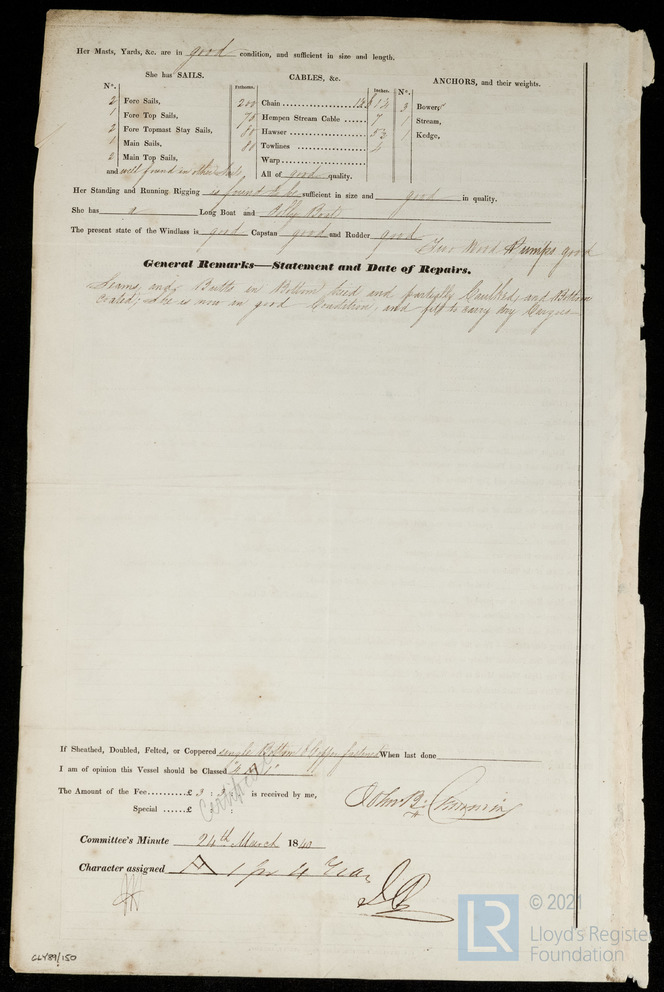 Her Masts, Yards, &c. are in good condition, and sufficient in size and length.
She has SAILS. CABLES, &c. ANCHORS, and their weights.
N°. Fathoms. Inches. N°.
2 Fore Sails, 200 Chain 3 Bowers
1 Fore Top Sails, 75 Hempen Stream Cable 7 1 Stream,
2 Fore Topmast Stay Sails, 80 Hawser 1 Kedge,
1 Main Sails, 80 Towlines
2 Main Top Sails, Warp
and well found in other Sails, All of good quality.
Her Standing and Running Rigging is found to be sufficient in size and good in quality.
She has a Long Boat and Jolly Boat
The present state of the Windlass is good Capstan good and Rudder good
Two Wood Pumps good
General Remarks—Statement and Date of Repairs.
Seams and Butts in Bottom tried and partially Caulked, and Bottom
Coated; She is now in good Condition, and fit to carry Dry Cargoes
If Sheathed, Doubled, Felted, or Coppered single Bottom & Copper fastened When last done
I am of opinion this Vessel should be Classed "4 A 1"
The Amount of the Fee £ 3 : 3 : is received by me,
Certificate
Special £ :
John B.
Committee's Minute 24th March 1840
Character assigned A 1 for 4 Years
CLY89/150
LR
© 2021
Lloyd's Register
Foundation